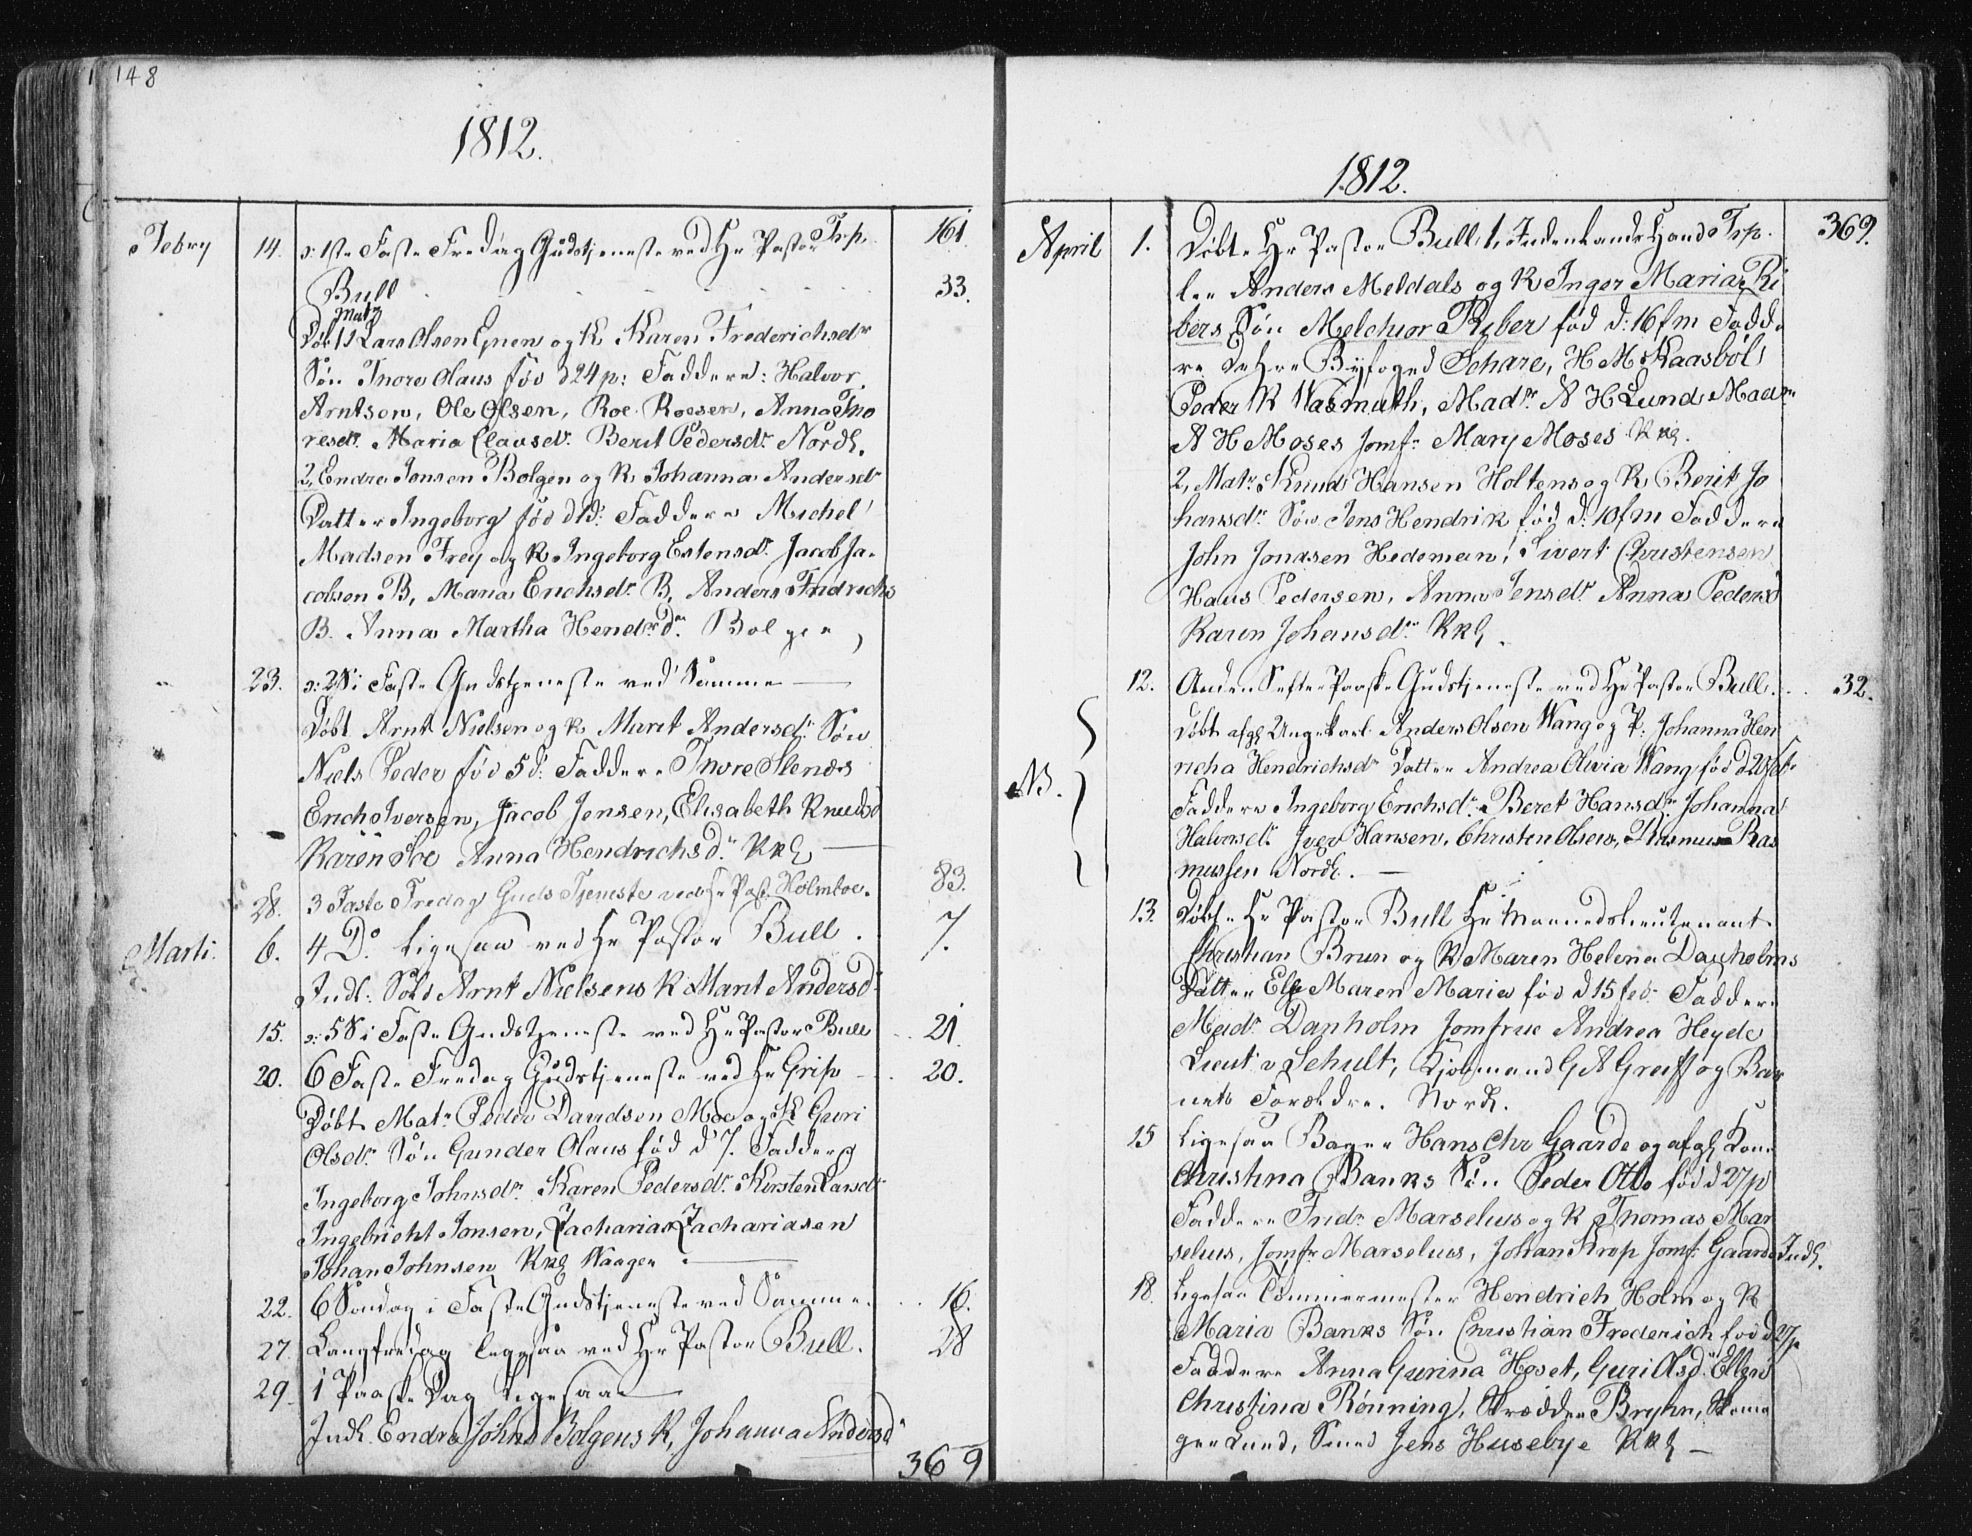 148
1812.
Febry 14. 1ste Faste Fredag Gudstjeneste ved Hr Pastor Trp. 161
Bull 33.
Matr
Døbt 1 Lars Olsen og K Karen Frederichsdr
Søn Thore Olaus fød d 24 p: Faddere: Halvor
Arntsen, Ole Olsen, Roe Roesen, Anna Tho
resdr Maria Clausdr Berit Pedersdr Nordl.
2, Endre Jonsen Bolgen og K Johanna Andersdr
Datter Ingeborg fød Faddere Michel
Madsen Frey og K Ingeborg Estensdr Jacob Ja-
cobsen B, Maria Erichsdr B, Anders Fridrichs
B. Anna Martha Hendrdr Bolgen,
23. 2 S i Faste Gudstjeneste ved Samme
Døbt Arnt Nielsen og K Marit Andersdr Søn
Niels Peder fød 5 d: Faddere Thore Stenæs
Erich Iversen, Jacob Jensen, Elisabeth Knudsd
Karen Soe Anna Hendrichsdr Kkl
28. 3 Faste Fredag Guds Tjeneste ved Hr Past. Holmboe. 83.
Marti. 6. 4 Do ligesaa ved Hr Pastor Bull. 7.
Indl: Sold Arnt Nielsens K Marit Andersd
15. 5 S i Faste Gudstjeneste ved Hr Pastor Bull 21.
20. 6 Faste Fredag Gudstjeneste ved Hr Grip 20.
Døbt Matr Peder Davidsen Moe og K Guri
Olsdr Søn Gunder Olaus fød d 7. Faddere
Ingeborg Johnsdr Karen Pedersdr Kirsten Larsdr
Ingebricht Jonsen, Zacharias Zachariasen
Johan Johnsen Kkl Waagen
22. 6 Søndag i Faste Gudstjeneste ved Samme. 16.
27. Langfredag ligesaa ved Hr Pastor Bull. 28
29. 1 Paaske Dag ligesaa
Indl. Endre Johns Bolgens K, Johanna Andersd
369
1812.
April 1. Døbte Hr Pastor Bull 1, Trp. 369.
Anders Meldals og K Inger Maria Ri
bers Søn Melchior Riber fød d: 16 f m Fadde
re Byfoged Schare, H M Kaasbøl
Peder K Wasmuth, Madm A H Lund Madm
A H Moses Jomfr Mary Moses Kkl.
2, Matr Knud Hansen Holtens og K Berit Jo
hansdr Søn Jens Hendrik fød d: 10 f m Faddere
John Jonasen Hedeman, Sivert Christensen
Hans Pedersen, Anna Jensdr Anna Pedersd
Karen Johansdr Kkl.
12. Anden S efter Paaske Gudstjeneste ved Hr Pastor Bull. 32.
Døbt afg Ungekarl Anders Olsen Wang og P: Johanna Hen
richa Hendrichsdr Datter Andrea Olivia Wang fød d 20
NB. Faddere Ingeborg Erichsdr Beret Hansdr Johanna
Halvorsdr Iver Hansen, Christen Olsen, Rasmus Ras
mussen Nordl.
13. Døbte Hr Pastor Bull Hr Maanedslieutenant
Christian Brun og K Maren Helena Danholms
Datter Else Maren Maria fød d 15 feb. Faddere
Madr Danholm Jomfrue Andrea Heyde
Lieut v Schult, Kjøbmand G A Greiff og Bar
nets Forældre. Nordl.
15 Ligesaa Bager Hans Chr Gaarde og afg Kone
Christina Banks Søn Peder Otto fød d 27 p
Faddere Marselius og K Thomas Mar
selius, Jomfr Marselius, Johan Krop Jomf: Gaarde Indl.
18. Ligesaa Tømmermester Hendrich Holm og K
Maria Banks Søn Christian Frederich fød d 27 p
Faddere Anna Gurina Hoset, Guri Olsdr Ellen
Christina Rønning, Skrædder Bryhn, Skoma
ger Lund, Smed Jens Husebye Kkl